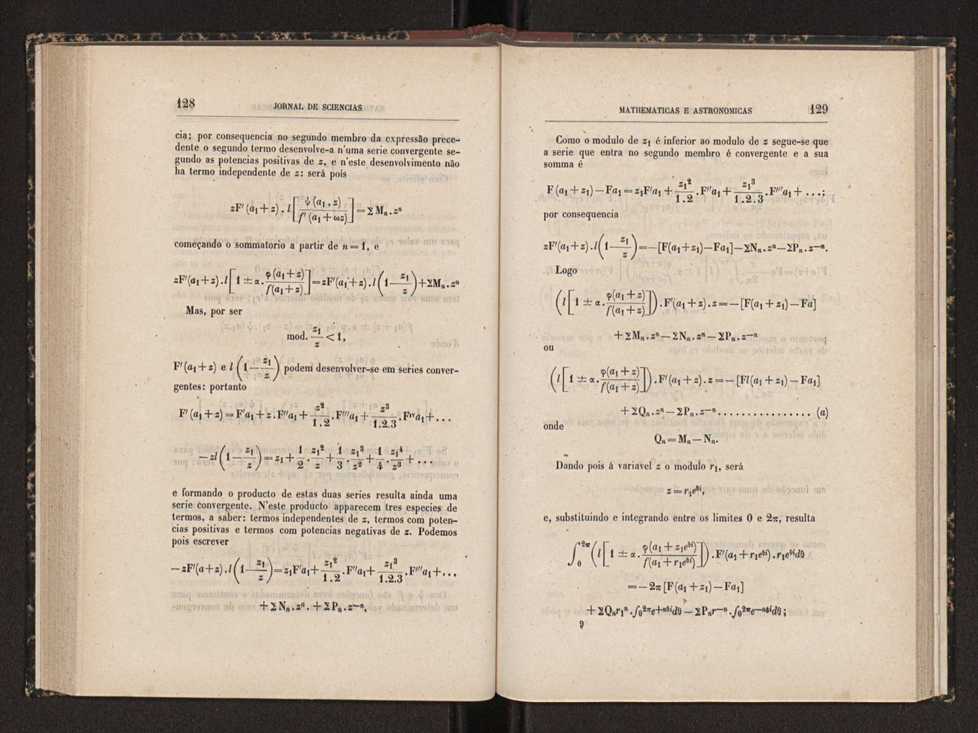 128 JORNAL DE SCIENCIAS
cia; por consequencia no segundo membro da expressão prece-
dente o segundo termo desenvolve-a n'uma serie convergente se-
gundo as potencias positivas de z, e n'este desenvolvimento não
ha termo independente de z: será pois
zF′(a₁+z) . l[ψ(a₁ , z) / f′(a₁+ωz)] = Σ Mₙ . zⁿ
começando o sommatorio a partir de n = 1, e
zF′(a₁+z) . l[1 ± α . φ(a₁+z) / f(a₁+z)] = zF′(a₁+z) . l(1 — z₁/z) + ΣMₙ . zⁿ
Mas, por ser
mod. z₁/z < 1,
F′(a₁+z) e l(1 — z₁/z) podem desenvolver-se em series conver-
gentes: portanto
F′(a₁+z) = F′a₁ + z . F″a₁ + z²/1.2 . F‴a₁ + z³/1.2.3 . Fᴵⱽa₁ + . . .
— zl(1 — z₁/z) = z₁ + 1/2 . z₁²/z + 1/3 . z₁³/z² + 1/4 . z₁⁴/z³ + . . .
e formando o producto de estas duas series resulta ainda uma
serie convergente. N'este producto apparecem tres especies de
termos, a saber: termos independentes de z, termos com poten-
cias positivas e termos com potencias negativas de z. Podemos
pois escrever
— zF′(a+z) . l(1 — z₁/z) = z₁F′a₁ + z₁²/1.2 . F″a₁ + z₁³/1.2.3 . F‴a₁ + . . ,
+ Σ Nₙ . zⁿ . + Σ Pₙ . z⁻ⁿ,
MATHEMATICAS E ASTRONOMICAS 129
Como o modulo de z₁ é inferior ao modulo de z segue-se que
a serie que entra no segundo membro é convergente e a sua
somma é
F(a₁+z₁) — Fa₁ = z₁F′a₁ + z₁²/1.2 . F″a₁ + z₁³/1.2.3 . F‴a₁ + . . .;
por consequencia
zF′(a₁+z) . l(1 — z₁/z) = — [F(a₁+z₁) — Fa₁] — ΣNₙ . zⁿ — ΣPₙ . z⁻ⁿ.
Logo
(l[1 ± α . φ(a₁+z) / f(a₁+z)]) . F′(a₁+z) . z = — [F(a₁+z₁) — Fa]
+ ΣMₙ . zⁿ — ΣNₙ . zⁿ — ΣPₙ . z⁻ⁿ
ou
(l[1 ± α . φ(a₁+z) / f(a₁+z)]) . F′(a₁+z) . z = — [Fl(a₁+z₁) — Fa₁]
+ ΣQₙ . zⁿ — ΣPₙ . z⁻ⁿ . . . . . . . . . . . . . . . . (a)
onde
Qₙ = Mₙ — Nₙ.
Dando pois á variavel z o modulo r₁, será
z = r₁e^θi,
e, substituindo e integrando entre os limites 0 e 2π, resulta
∫₀^+2π (l[1 ± α . φ(a₁+z₁e^θi) / f(a₁+r₁e^θi)]) . F′(a₁+r₁e^θi) . r₁e^θi dθ
= — 2π [F(a₁+z₁) — Fa₁]
+ ΣQₙr₁ⁿ . ∫₀^2π e^+nθi dθ — ΣPₙr⁻ⁿ . ∫₀^2π e^—nθi dθ ;
9